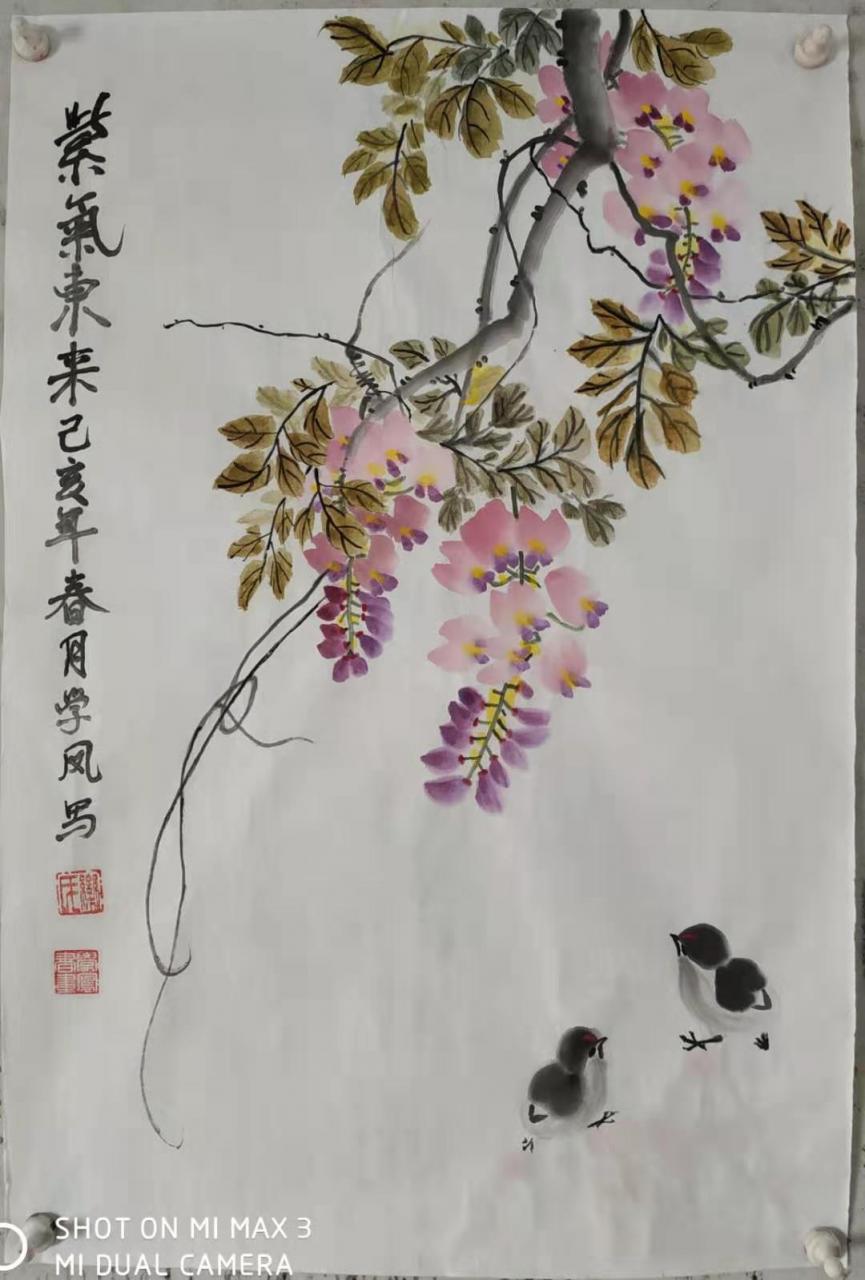 紫氣東来己亥年春月学凤写
SHOT ON MI MAX 3
MI DUAL CAMERA